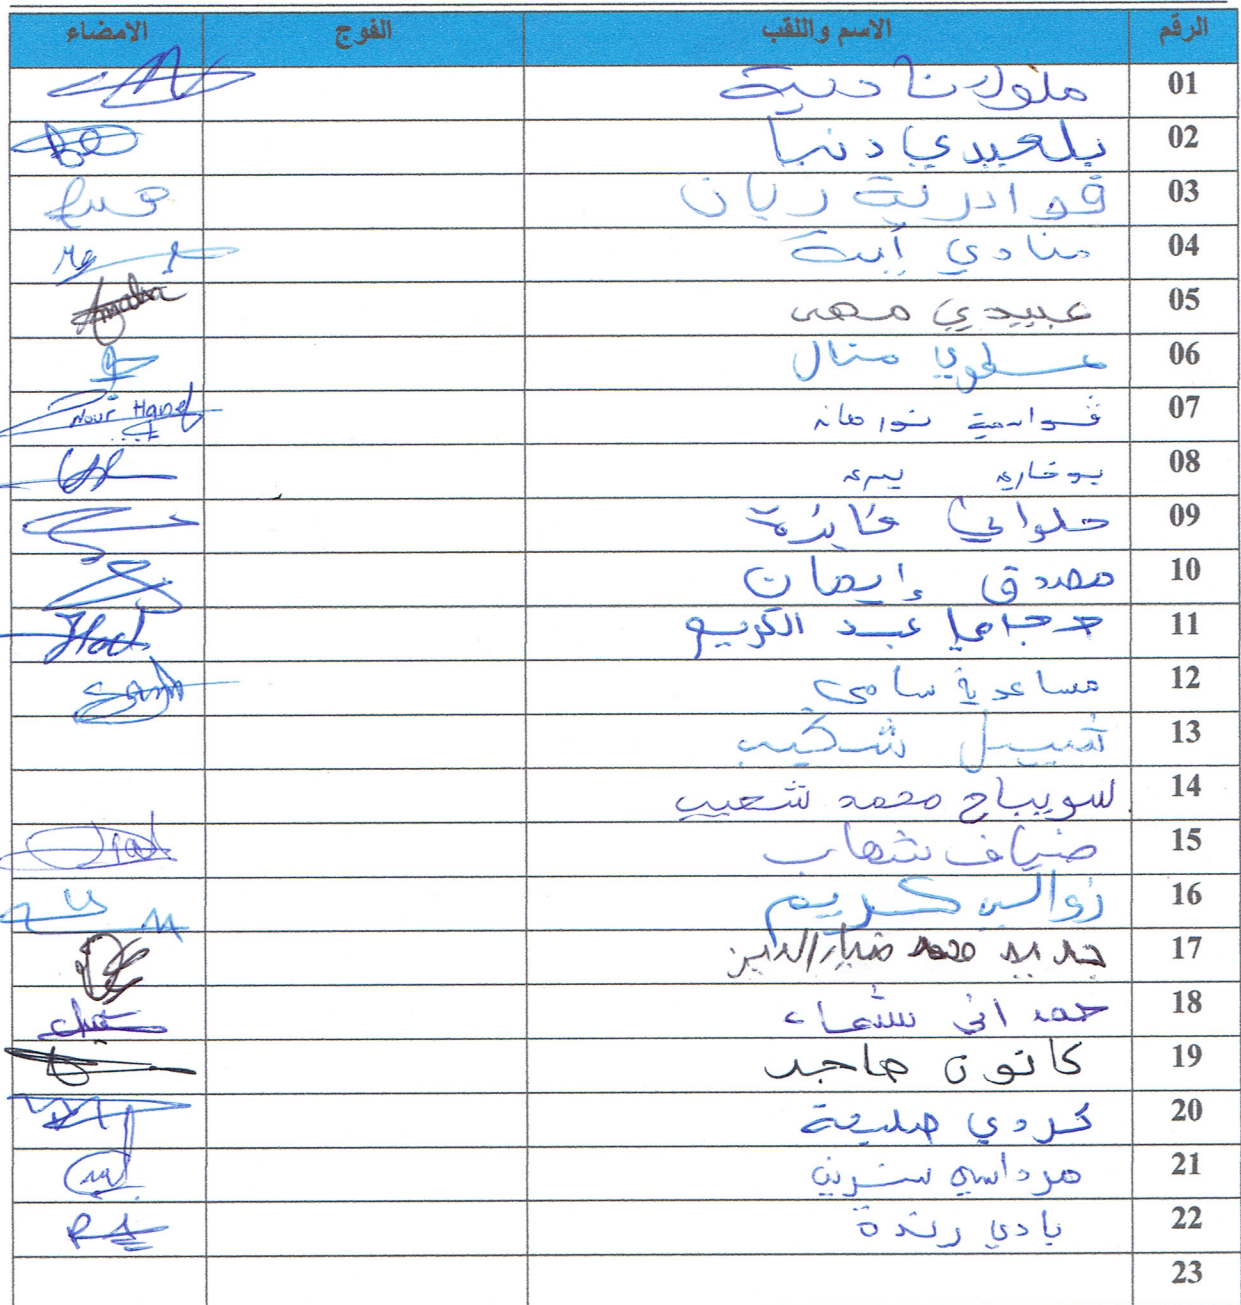 الرقم الاسم واللقب الفوج الامضاء
01 ملوك نادية
02 بلعبيدي دنيا
03 قوادرية ريان
04 منادي آية
05 عبيدي مهى
06 منال
07 قوادرية نورهان Nour Hane
08 بوخاري يسرى
09 حلواني فايزة
10 مصدق إيمان
11 حجامي عبد الكريم Had
12 مساعدية سامي Sami
13 شبيل شكيب
14 سويباح محمد شعيب
15 ضياف شهاب
16 كريم
17 جديد محمد ضياء الدين
18 حمداني شيماء
19 كانون ماجد
20 كردي صليحة
21 مرداسي نسرين
22 بادي رندة
23